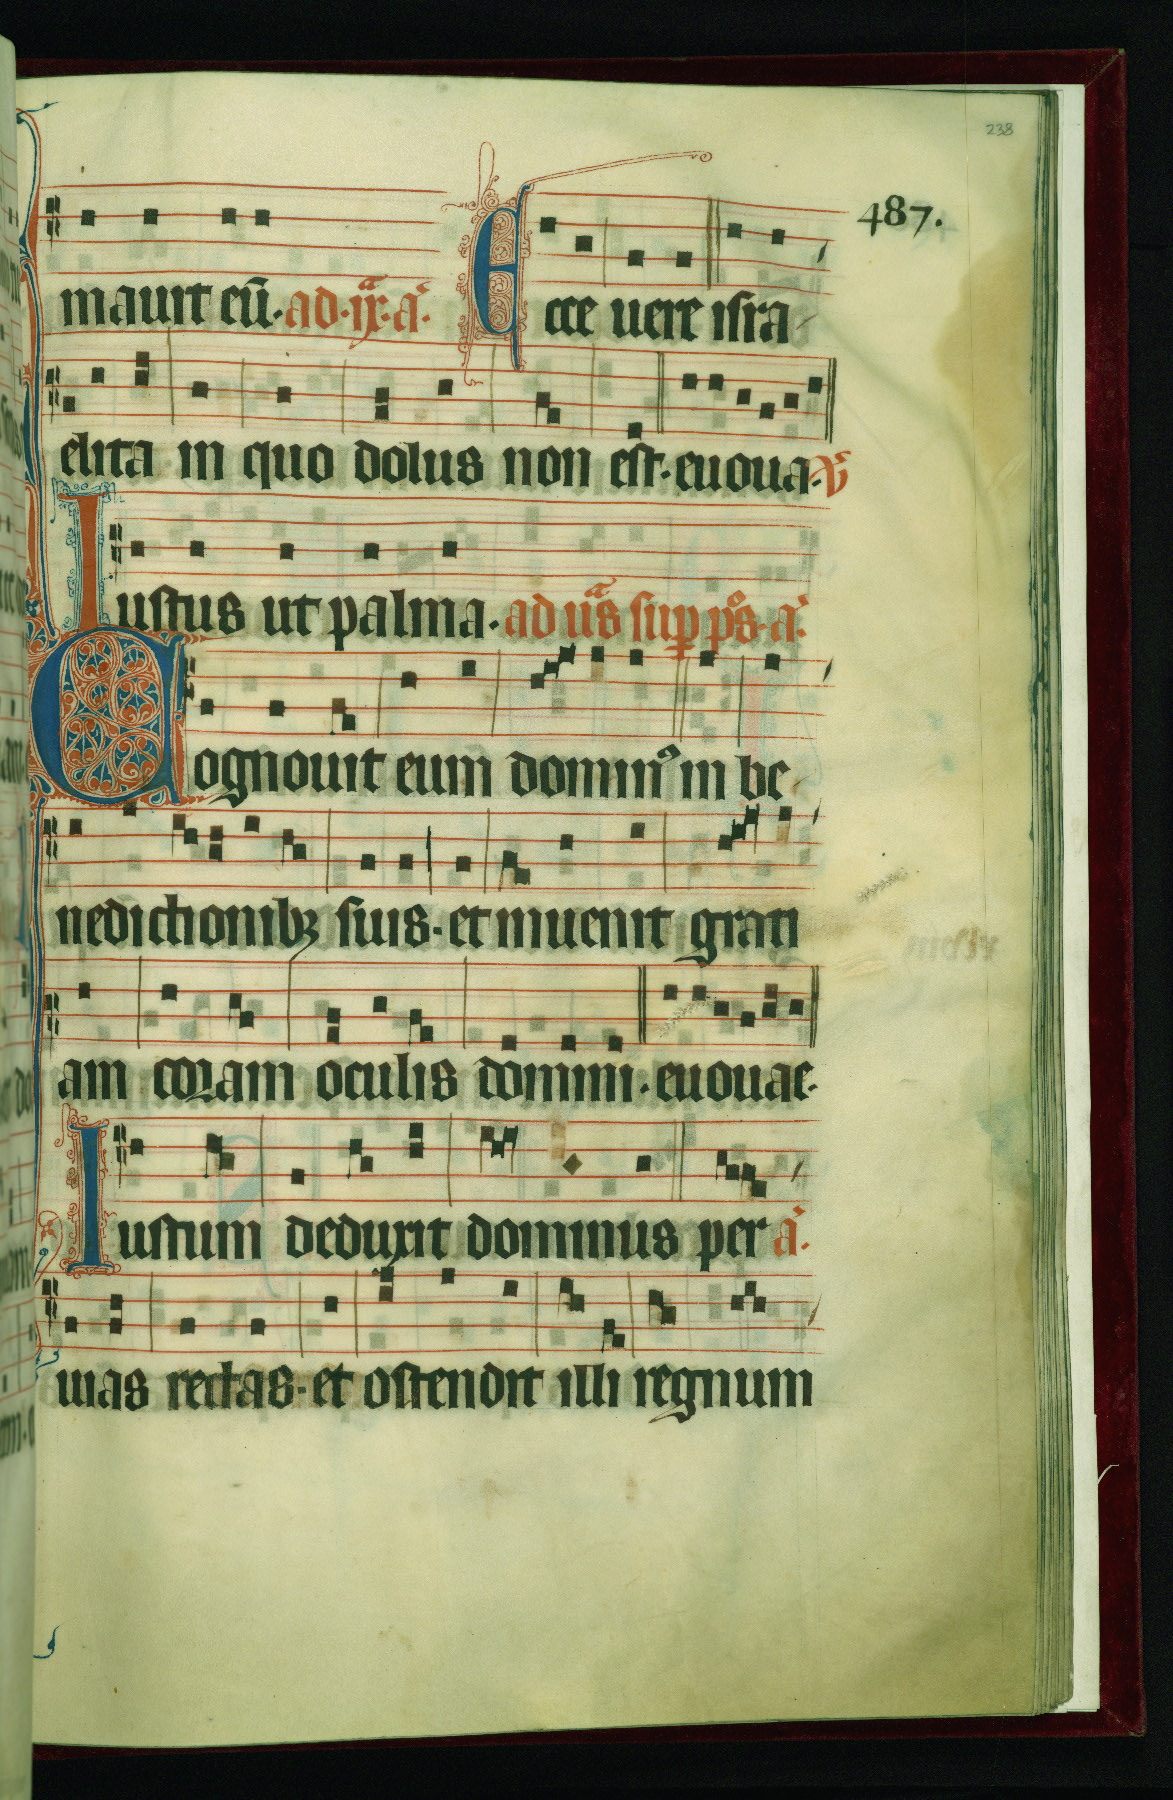 238
487.
mauit eū. ad .ix. a. Ecce uere isra
elita in quo dolus non est. euoua. v̄
Iustus ut palma. ad uās sup ps. a.
Cognouit eum domin᷒ in be
nedictionibꝫ suis. et inuenit grati
am coram oculis domini. euouae.
Iustum deduxit dominus per a.
uias rectas. et ostendit illi regnum